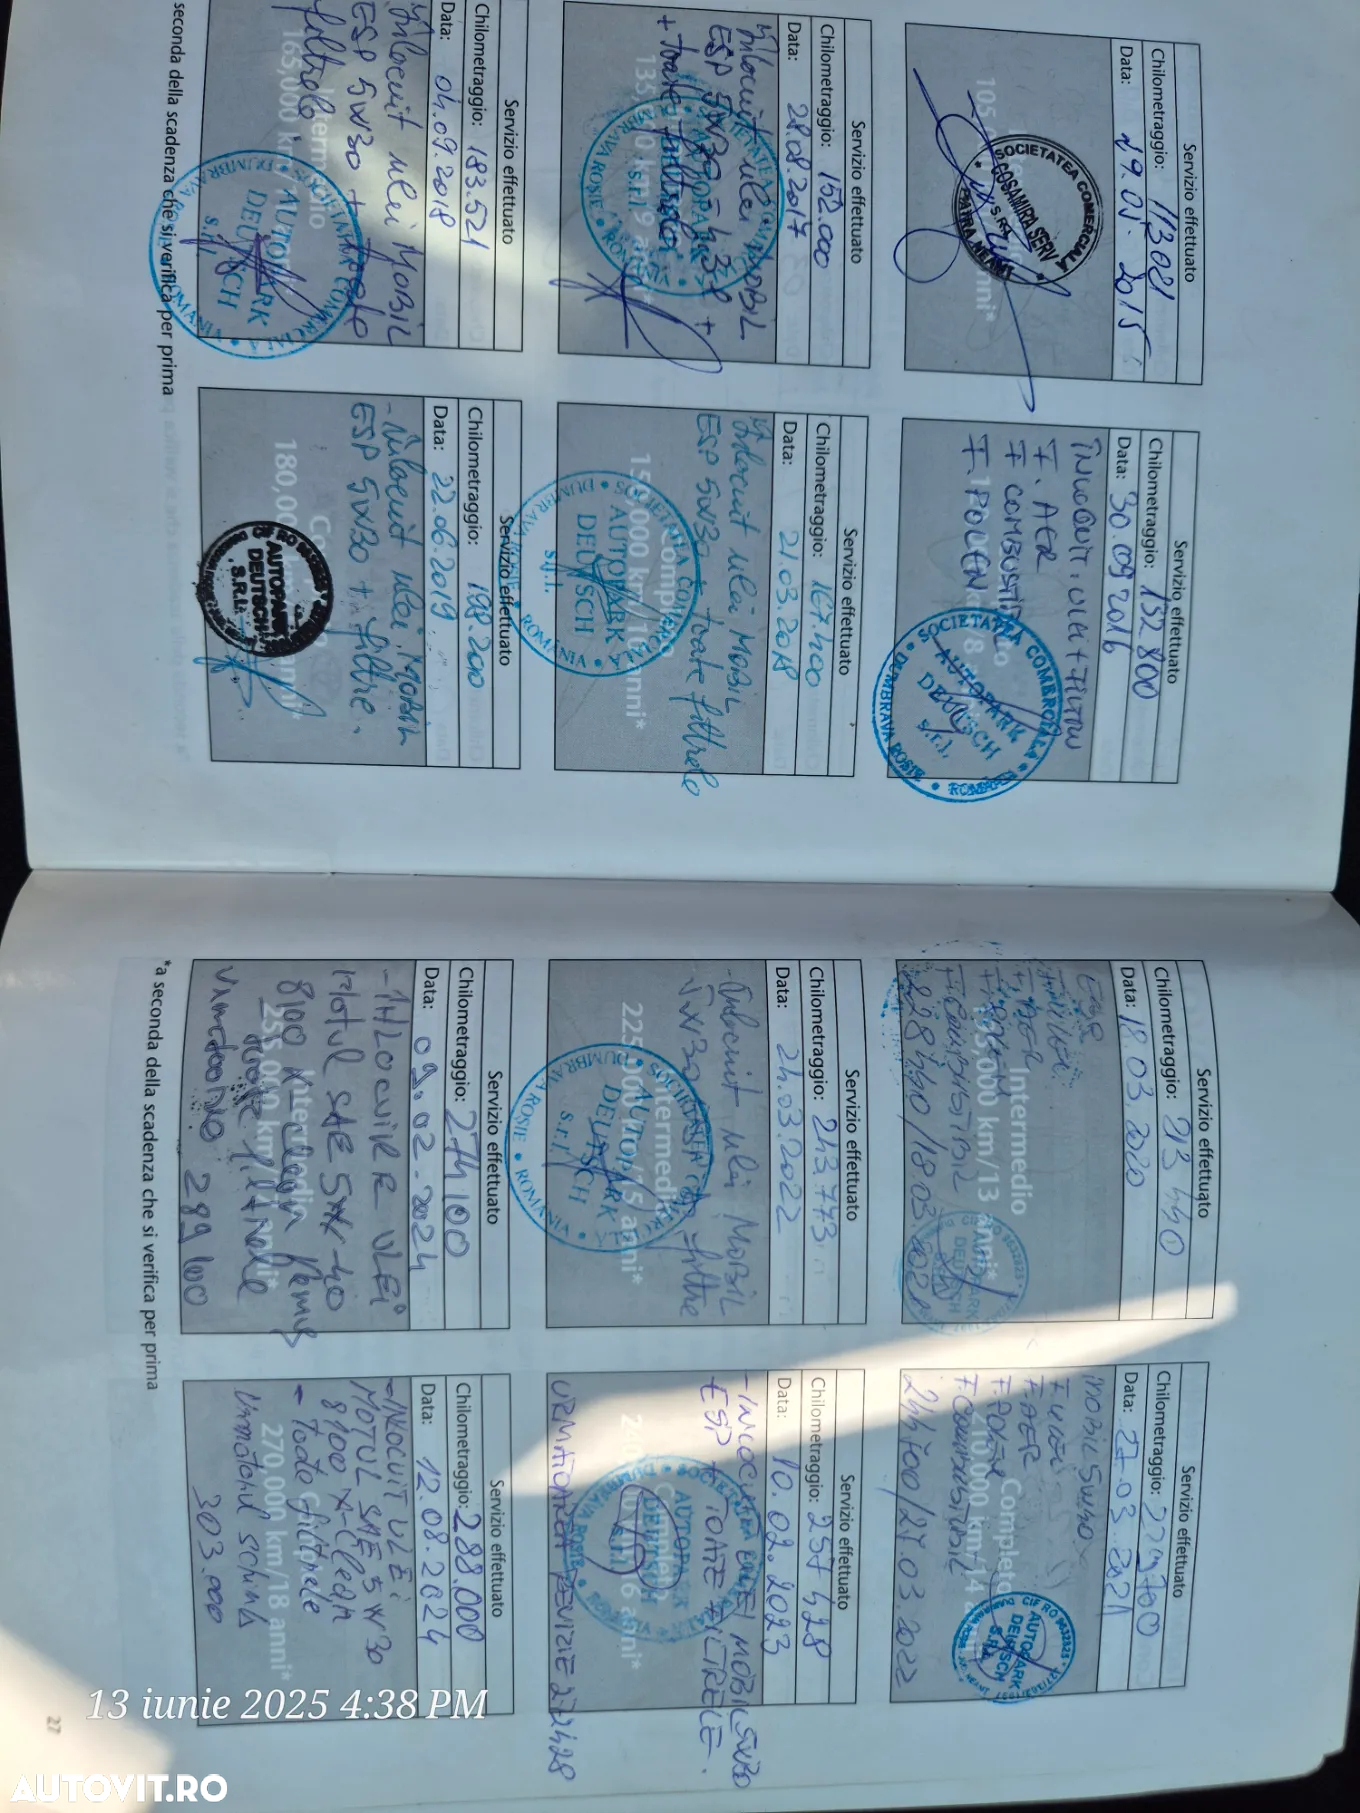 Servizio effettuato
Chilometraggio: 113081
Data: 19.05.2015
105
SOCIETATEA COMERCIALA
COSAMIRA SERV
S.R.L.
PIATRA NEAMT
Servizio effettuato
Chilometraggio: 132800
Data: 30.09.2016
F. AER
F COMBUSTIBIL
F. POLEN
SOCIETATEA COMERCIALA
AUTOPARK
DEUTSCH
s.r.l.
DUMBRAVA ROSIE
Servizio effettuato
Chilometraggio: 152.000
Data: 28.08.2017
Înlocuit ulei MOBIL
ESP 5W30
+ toate filtrele
DUMBRAVA ROSIE
Servizio effettuato
Chilometraggio: 167.400
Data: 21.03.2018
Înlocuit ulei MOBIL
ESP 5W30 toate filtrele
150,000 km/10 anni*
Completo
SOCIETATEA COMERCIALA
AUTOPARK
DEUTSCH
s.r.l.
DUMBRAVA ROSIE • ROMÂNIA
Servizio effettuato
Chilometraggio: 183.521
Data: 04.09.2018
Înlocuit ulei MOBIL
ESP 5W30 + toate
filtrele.
Intermedio
165,000 km
AUTOPARK
DEUTSCH
s.r.l.
DUMBRAVA ROSIE • ROMÂNIA
Servizio effettuato
Chilometraggio: 198.200
Data: 22.06.2019
- Înlocuit ulei MOBIL
ESP 5W30 + filtre.
180,000
anni*
AUTOPARK
DEUTSCH
S.R.L.
seconda della scadenza che si verifica per prima
Servizio effettuato
Chilometraggio: 213440
Data: 18.03.2020
F. COMBUSTIBIL
228440/18.03.2021
Intermedio
195,000 km/13 anni*
Servizio effettuato
Chilometraggio: 229700
Data: 27.03.2021
MOBIL 5W30
F. ULEI
F. AER
F. POLEN
F. COMBUSTIBIL
244700/27.03.2022
Completo
210,000 km/14 anni*
AUTOPARK
DEUTSCH
S.R.L.
Servizio effettuato
Chilometraggio: 243.773
Data: 24.03.2022
- Înlocuit ulei MOBIL
5W30 + filtre
Intermedio
225,000 km/15 anni*
AUTOPARK
DEUTSCH
s.r.l.
DUMBRAVA ROSIE • ROMÂNIA
Servizio effettuato
Chilometraggio: 257428
Data: 10.02.2023
- INLOCUIT ULEI MOBIL 5W30
ESP + TOATE FILTRELE.
Completo
240
16 anni*
AUTOPARK
DEUTSCH
URMATOREA REVIZIE 272428
Servizio effettuato
Chilometraggio: 274100
Data: 09.02.2024
- INLOCUIRE ULEI
MOTUL SAE 5W-40
8100 X-clean
toate filtrele
289100
Intermedio
255,000 km/17 anni*
Servizio effettuato
Chilometraggio: 288.000
Data: 12.08.2024
- INLOCUIT ULEI
MOTUL SAE 5W30
8100 X-Clean
- Toate filtrele
Urmatorul schimb
303.000
270,000 km/18 anni*
*a seconda della scadenza che si verifica per prima
27
13 iunie 2025 4:38 PM
AUTOVIT.RO